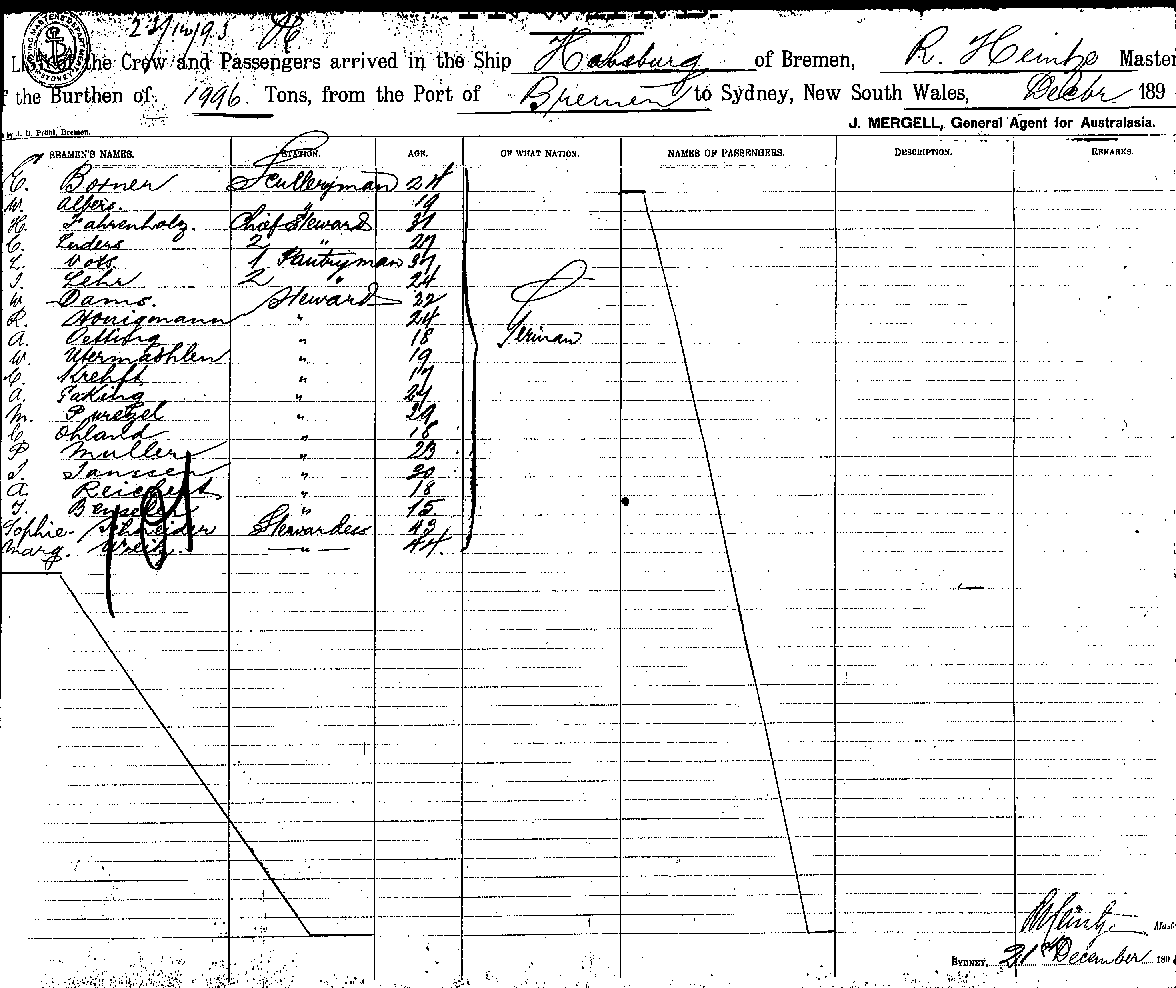 INWARD.
List of the Crew and Passengers arrived in the Ship Habsburg of Bremen, R. Heintze Master
f the Burthen of 1996 Tons, from the Port of Bremen to Sydney, New South Wales, Decbr 189
J. MERGELL, General Agent for Australasia.
SEAMEN'S NAMES. STATION. AGE. OF WHAT NATION. NAMES OF PASSENGERS. DESCRIPTION. REMARKS.
E. Borner Sculleryman 24
W. Albers. " 19
H. Fahrenholz. Chief Steward 31
C. Luders 2 " 27
Vots 1 Pantryman 37
J. Lehr 2 " 24
W. Dams. Steward 22
R. Honigmann " 24
A. Oetting " 18 German
W. Utermöhlen " 19
C. Krehft " 17
A. Faking " 24
M. Puretzel " 29
C. Ohland " 18
P. Muller " 23
J. Janssen " 20
A. Reichert " 18
" 15
Sophie Schneider Stewardess 43
Marg. " 44
191
R Heintze Mast
SYDNEY, 21st December 189